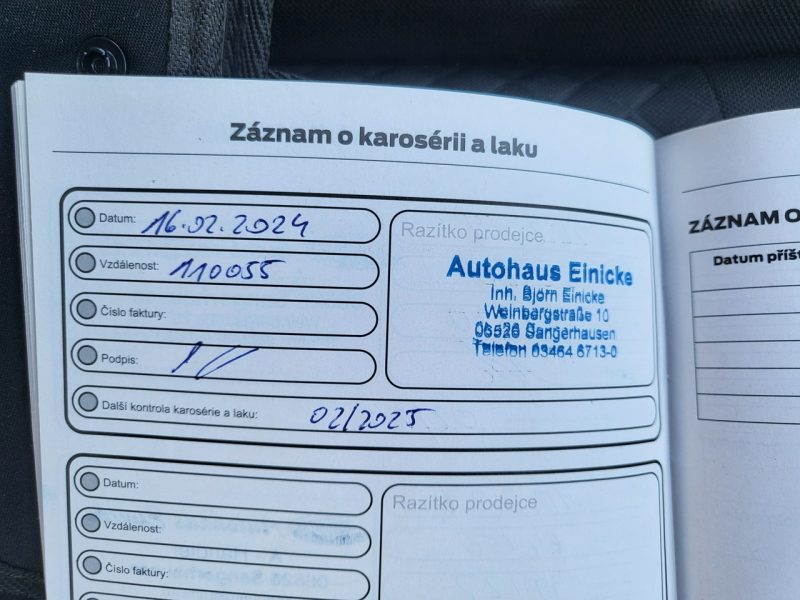 Záznam o karosérii a laku
Datum: 16.02.2024
Vzdálenost: 110055
Číslo faktury:
Podpis:
Další kontrola karosérie a laku: 02/2025
Razítko prodejce
Autohaus Einicke
Inh. Björn Einicke
Weinbergstraße 10
06526 Sangerhausen
Telefon 03464 5713-0
Datum:
Vzdálenost:
Číslo faktury:
Razítko prodejce
ZÁZNAM O
Datum příšt